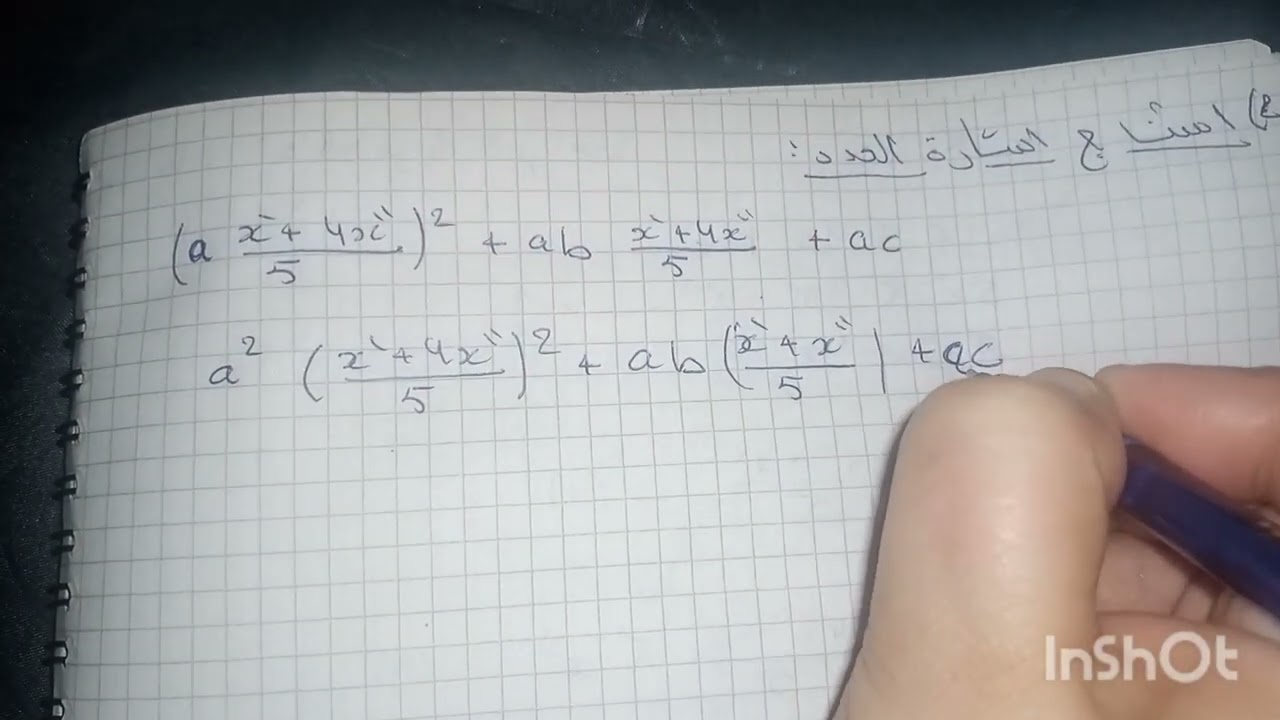 4) استنتاج اشارة العدد :
(a (x' + 4x'')/5)² + ab (x' + 4x'')/5 + ac
a² ((x' + 4x'')/5)² + ab ((x' + x'')/5) + ac
InShOt